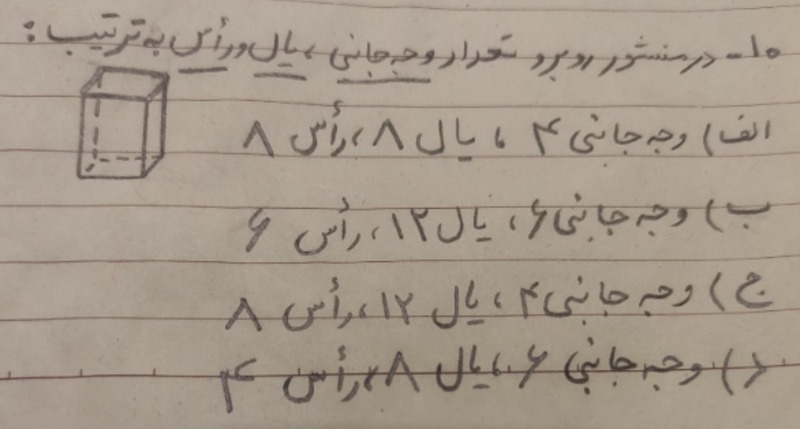 ۱۰- در منشور روبرو تعداد وجه جانبی، یال و رأس به ترتیب:
الف) وجه جانبی ۴، یال ۸، رأس ۸
ب) وجه جانبی ۶، یال ۱۲، رأس ۶
ج) وجه جانبی ۴، یال ۱۲، رأس ۸
د) وجه جانبی ۶، یال ۸، رأس ۴